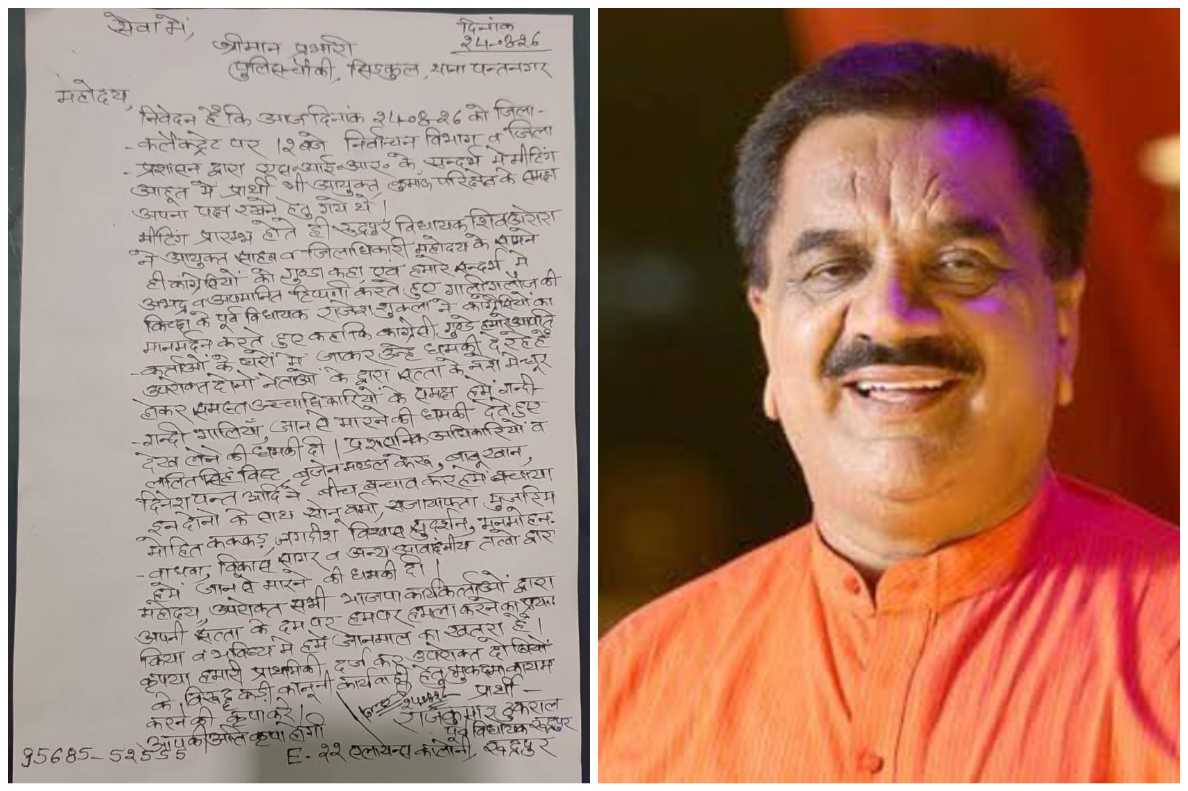 सेवा में,
दिनांक
24-08-26
श्रीमान प्रभारी
पुलिस चौकी, सिडकुल, थाना पन्तनगर
महोदय,
निवेदन है कि आज दिनांक 24-08-26 को जिला-
-कलैक्ट्रेट पर 12 बजे निर्वाचन विभाग व जिला
प्रशासन द्वारा एस०आई०आर० के सन्दर्भ में मीटिंग
आहूत में प्रार्थी श्री आयुक्त कुमाऊं परिक्षेत्र के समक्ष
अपना पक्ष रखने हेतु गये थे।
मीटिंग प्रारम्भ होते ही रूद्रपुर विधायक शिव अरोरा
ने आयुक्त साहब व जिलाधिकारी महोदय के सामने
ही कांग्रेसियों को गुण्डा कहा एवं हमारे सन्दर्भ में
अभद्र व अपमानित टिप्पणी करते हुए गाली गलौज की
किच्छा के पूर्व विधायक राजेश शुक्ला ने कांग्रेसियों का
मानमर्दन करते हुए कहा कि कांग्रेसी गुण्डे हमारे आपत्ति
-कर्ताओं के घरों में जाकर उन्हें धमकी दे रहे हैं
उपरोक्त दोनों नेताओं के द्वारा सत्ता के नशे में चूर
होकर समस्त उच्चाधिकारियों के समक्ष हमें गन्दी
-गन्दी गालियाँ, जान से मारने की धमकी देते हुए
देख लेने की धमकी दी। प्रशासनिक अधिकारियों व
ललित सिंह बिष्ट, बृजेन मण्डल, बाबू खान,
दिनेश पन्त आदि ने बीच बचाव कर हमें बचाया
इन दोनों के साथ सोनू वर्मा सजायाफ्ता मुजरिम
मोहित कक्कड़, जगदीश विश्वास, सुदर्शन, मनमोहन
-वाधवा, विकास सागर व अन्य अवांछनीय तत्वों द्वारा
हमें जान से मारने की धमकी दी।
महोदय, उपरोक्त सभी भाजपा कार्यकर्ताओं द्वारा
अपनी सत्ता के दम पर हमपर हमला करने का प्रयत्न
किया व भविष्य में हमें जानमाल का खतरा है।
कृपया हमारी प्राथमिकी दर्ज कर उपरोक्त दोषियों
के विरूद्ध कड़ी कानूनी कार्यवाही हेतु मुकदमा कायम
करने की कृपा करें।
आपकी अति कृपा होगी
प्रार्थी-
राजकुमार ठुकराल
पूर्व विधायक रूद्रपुर
95685-52555
E-22 एलायन्स कालोनी, रूद्रपुर